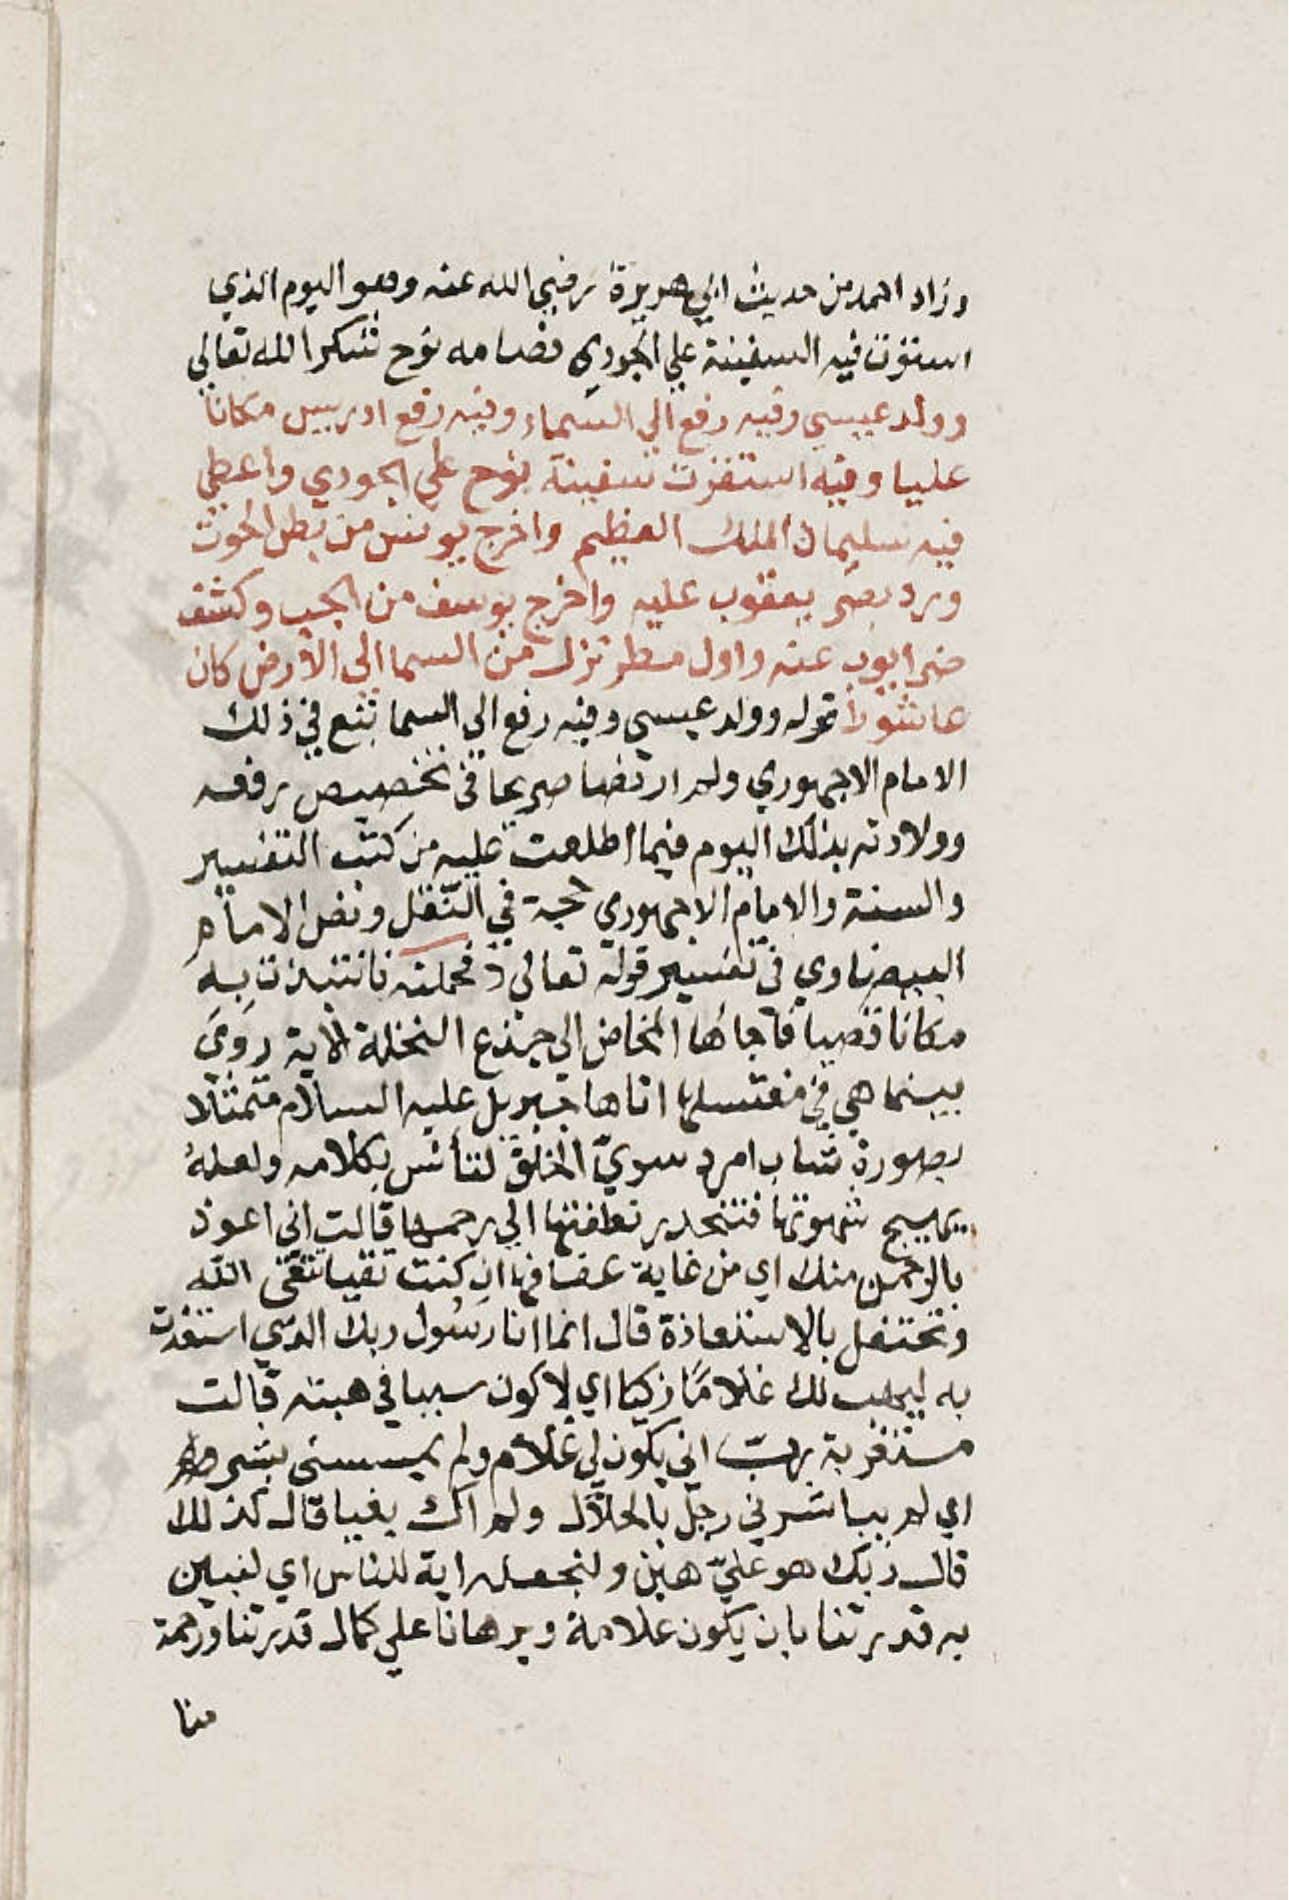 وزاد احمد من حديث ابي هريرة رضي الله عنه وهو اليوم الذي
استوت فيه السفينة علي الجودي فصامه نوح شكرا لله تعالي
وولد عيسي وفيه رفع الي السماء وفيه رفع ادريس مكانا
عليا وفيه استقرت سفينة نوح علي الجودي واعطي
فيه سليمان الملك العظيم واخرج يونس من بطن الحوت
ورد بصر يعقوب عليه واخرج يوسف من الجب وكشف
ضر ايوب عنه واول مطر نزل من السما الي الأرض كان
عاشوراً قوله وولد عيسي وفيه رفع الي السما تبع في ذلك
الامام الاجهوري ولم ار نصا صريحا في تخصيص رفعه
وولادته بذلك اليوم فيما اطلعت عليه من كتب التفسير
والسنة والامام الاجهوري حجة في النّقل ونص الامام
البيضاوي في تفسير قوله تعالي فحملته فانتبذت به
مكانا قصيا فأجاها المخاض الي جذع النخلة الاية روي
بينما هي في مغتسلها اتاها جبريل عليه السلام متمثلا
بصورة شاب امرد سويّ الخلق لتأنس بكلامه ولعله
يهيج شهوتها فتنحدر نطفتها الي رحمها قالت اني اعوذ
بالرحمن منك اي من غاية عفافها ان كنت تقيا تتقي الله
وتحتفل بالاستعاذة قال انما انا رسول ربك الذي استعذت
به ليهب لك غلامًا زكيا اي لاكون سببا في هبته قالت
اني يكون لي غلام ولم يمسسني بشر
اي لم يباشرني رجل بالحلال ولم اك بغيا قال كذلك
قال ربك هو عليّ هين ولنجعله اية للناس اي لنبين
به قدرتنا بان يكون علامة وبرهانا علي كمال قدرتنا ورحمة
منا